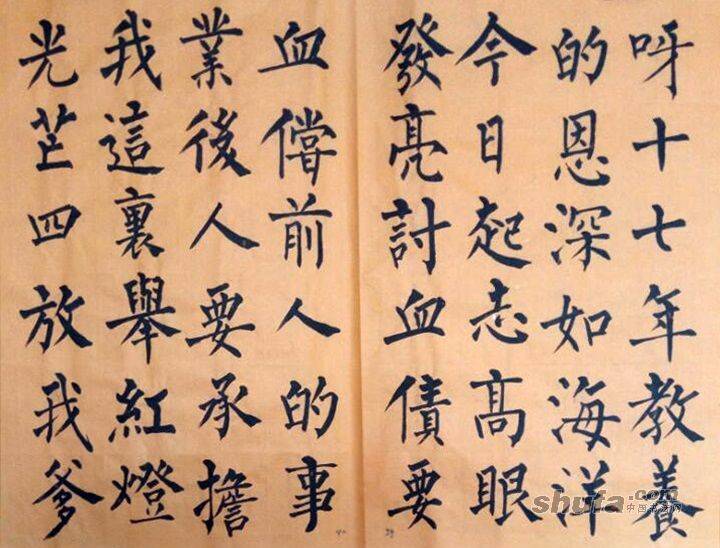 呀十七年教養
的恩深如海洋
今日起志高眼
發亮討血債要
血償前人的事
業後人要承擔
我這裏舉紅燈
光芒四放我爹
shufa.com
中国书法网